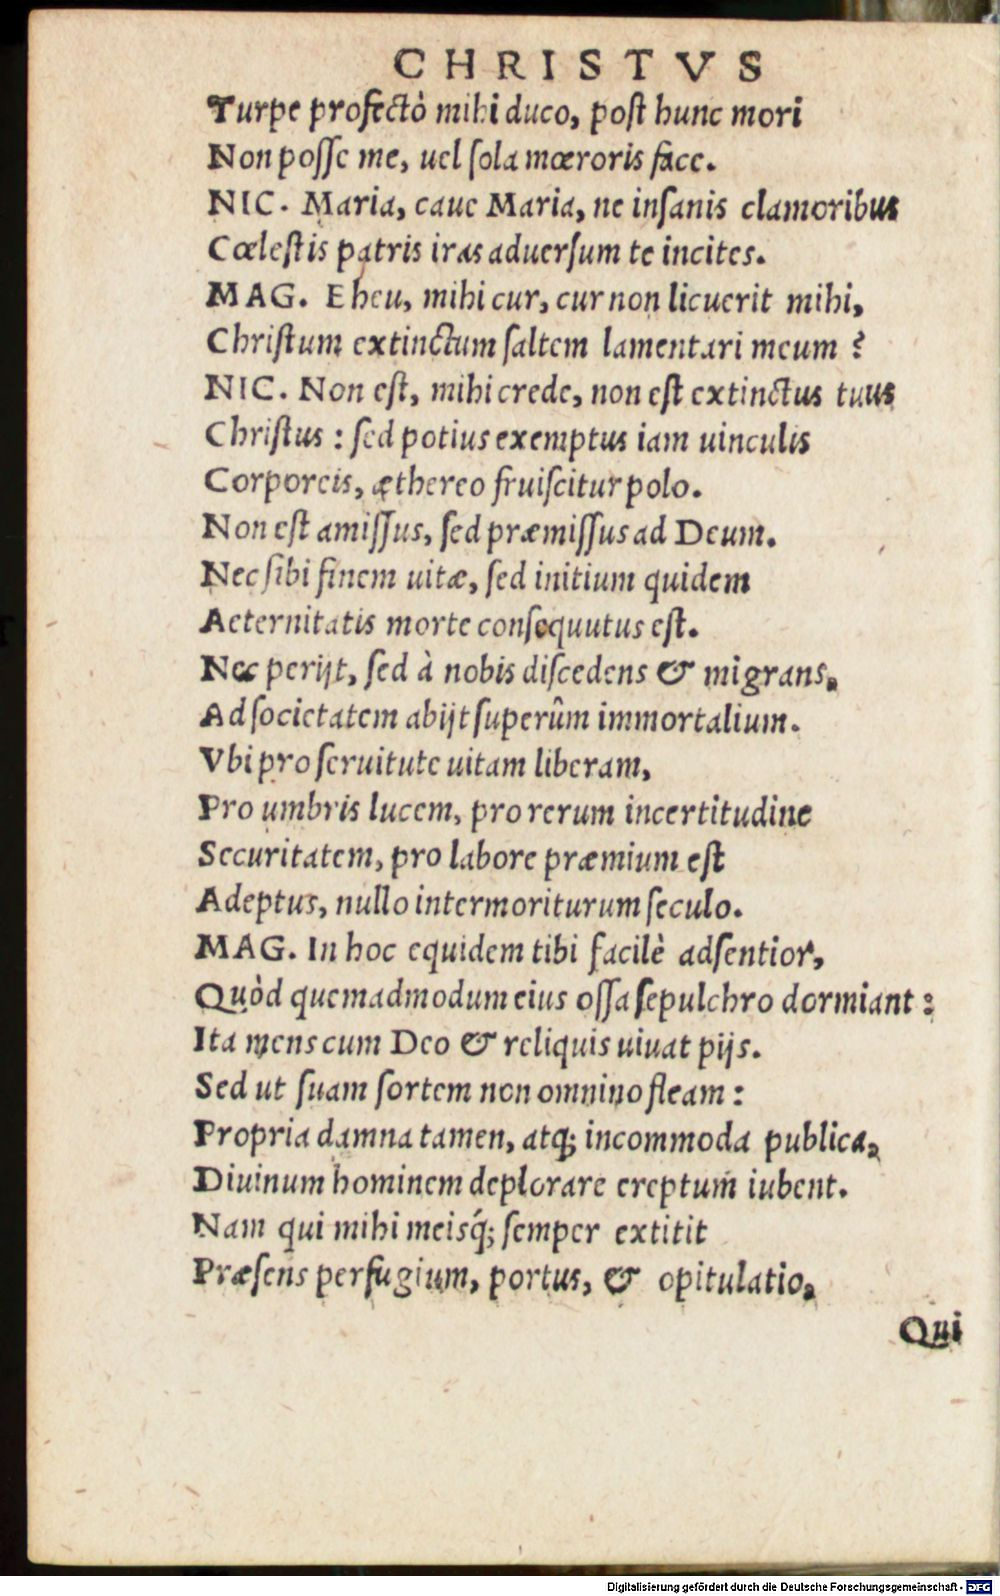 CHRISTVS
Turpe profectò mihi duco, post hunc mori
Non posse me, uel sola mœroris face.
NIC. Maria, caue Maria, ne insanis clamoribus
Cœlestis patris iras aduersum te incites.
MAG. Eheu, mihi cur, cur non licuerit mihi,
Christum extinctum saltem lamentari meum ?
NIC. Non est, mihi crede, non est extinctus tuus
Christus : sed potius exemptus iam uinculis
Corporeis, æthereo fruiscitur polo.
Non est amissus, sed præmissus ad Deum.
Nec sibi finem uitæ, sed initium quidem
Aeternitatis morte consequutus est.
Nec perijt, sed à nobis discedens & migrans,
Ad societatem abijt superûm immortalium.
Vbi pro seruitute uitam liberam,
Pro umbris lucem, pro rerum incertitudine
Securitatem, pro labore præmium est
Adeptus, nullo intermoriturum seculo.
MAG. In hoc equidem tibi facilè adsentior,
Quòd quemadmodum eius ossa sepulchro dormiant :
Ita mens cum Deo & reliquis uiuat pijs.
Sed ut suam sortem non omnino fleam :
Propria damna tamen, atq; incommoda publica,
Diuinum hominem deplorare ereptum iubent.
Nam qui mihi meisq́; semper extitit
Præsens perfugium, portus, & opitulatio,
Qui
Digitalisierung gefördert durch die Deutsche Forschungsgemeinschaft - DFG